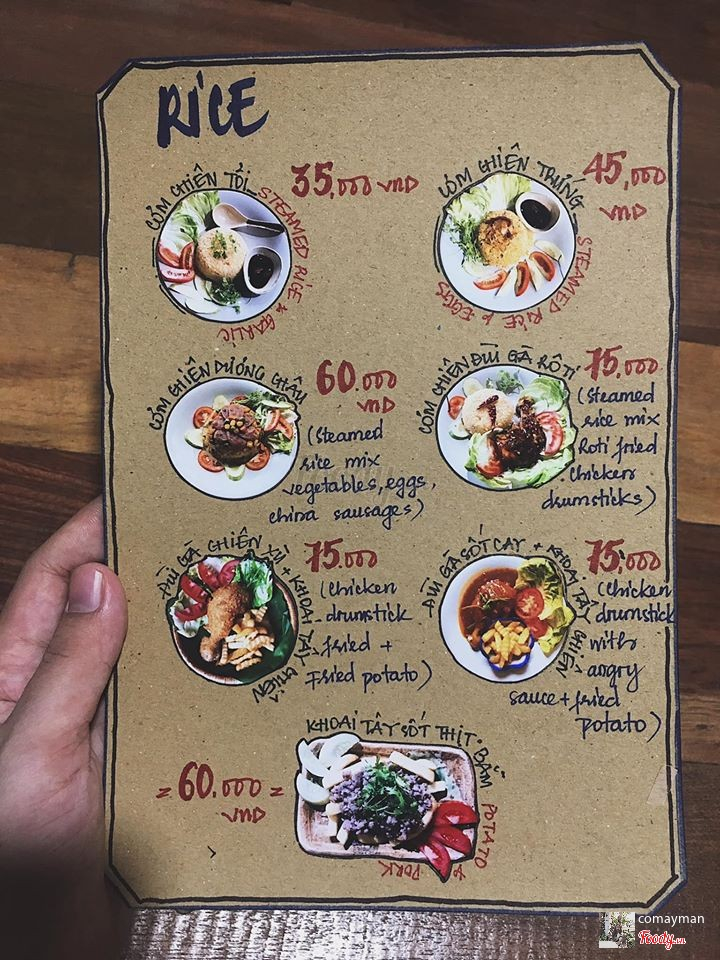 RICE
CƠM CHIÊN TỎI
35,000 VND
STEAMED RICE & GARLIC
CƠM CHIÊN TRỨNG
45,000
VND
STEAMED RICE & EGGS
CƠM CHIÊN DƯƠNG CHÂU
60.000
VND
(Steamed
rice mix
vegetables, eggs,
china sausages)
CƠM CHIÊN ĐÙI GÀ RÔTI
75.000
(Steamed
rice mix
Roti fried
chicken
drumsticks)
ĐÙI GÀ CHIÊN XÙ + KHOAI TÂY CHIÊN
75.000
(Chicken
drumstick
fried +
Fried potato)
ĐÙI GÀ SỐT CAY + KHOAI TÂY CHIÊN
75.000
(Chicken
drumstick
with
angry
sauce + fried
potato)
KHOAI TÂY SỐT THỊT BẰM
= 60.000 =
VND
POTATO & PORK
comayman
Foody.vn